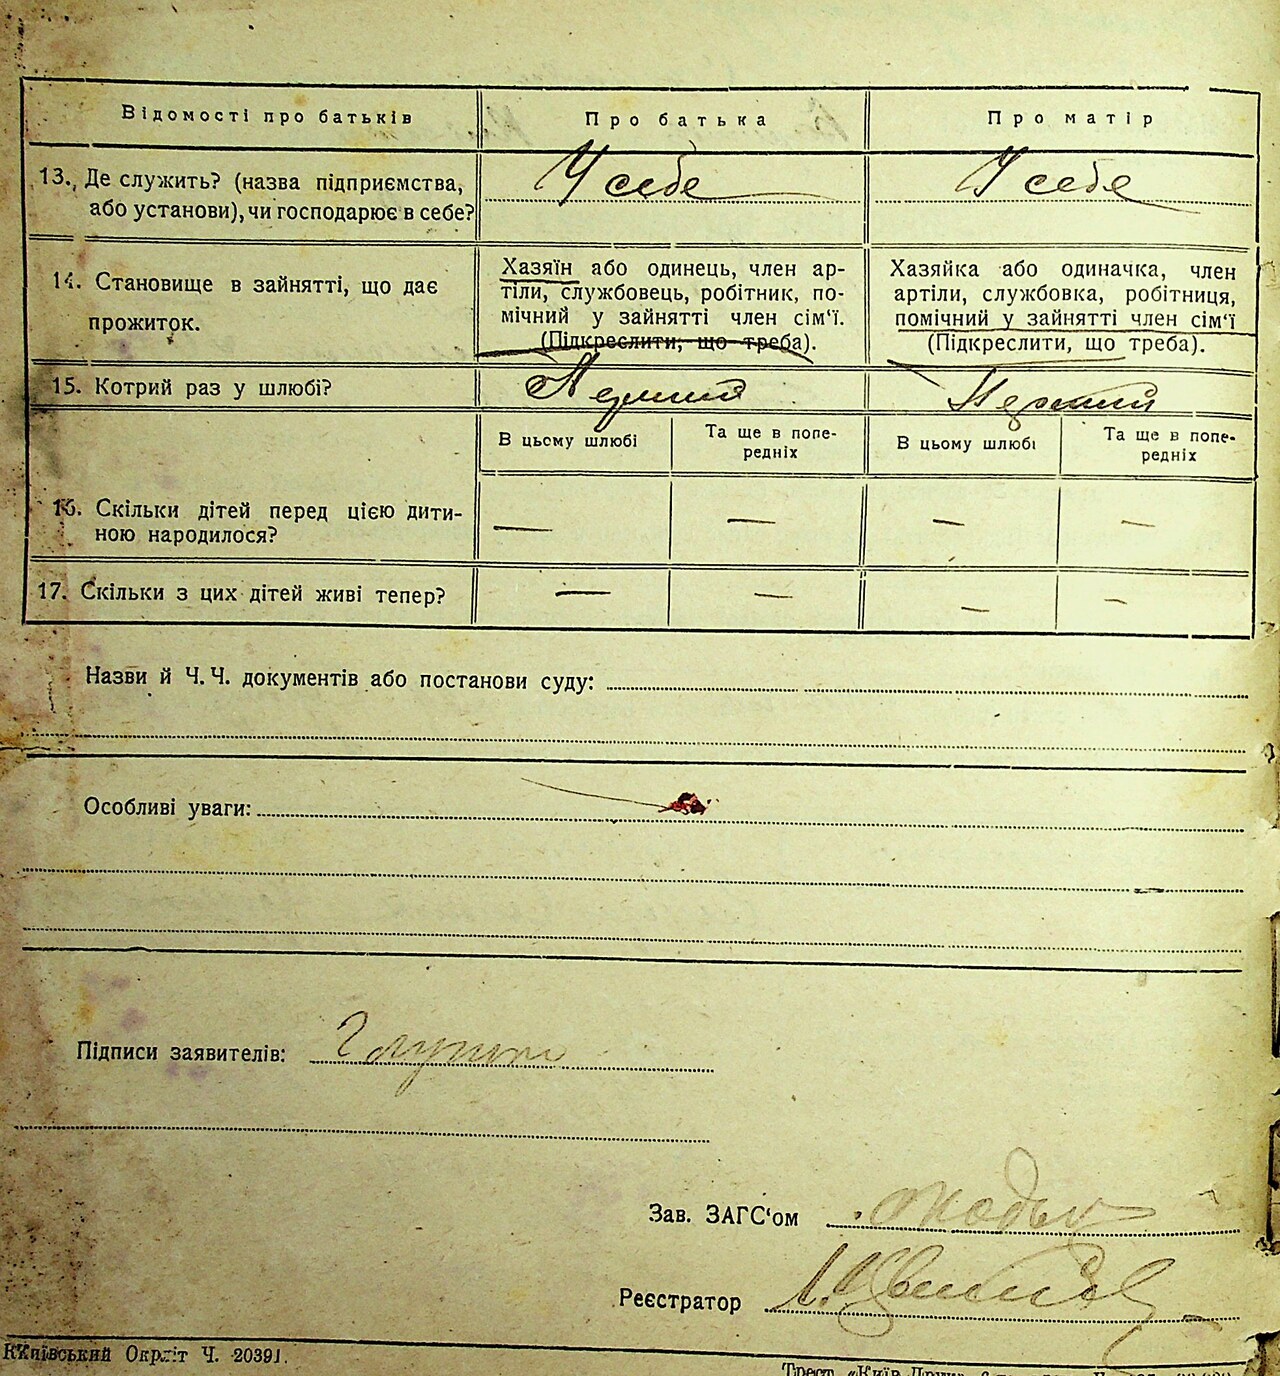 Відомості про батьків
Про батька
Про матір
13. Де служить? (назва підприємства,
або установи), чи господарює в себе?
У себе
У себе
14. Становище в зайнятті, що дає
прожиток.
Хазяїн або одинець, член ар-
тіли, службовець, робітник, по-
мічний у зайнятті член сім‘ї.
(Підкреслити, що треба).
Хазяйка або одиначка, член
артіли, службовка, робітниця,
помічний у зайнятті член сім‘ї
(Підкреслити, що треба).
15. Котрий раз у шлюбі?
Первий
Первий
В цьому шлюбі
Та ще в попе-
редніх
В цьому шлюбі
Та ще в попе-
редніх
16. Скільки дітей перед цією дити-
ною народилося?
— — — —
17. Скільки з цих дітей живі тепер?
— — — —
Назви й Ч. Ч. документів або постанови суду:
Особливі уваги:
Підписи заявителів:
Зав. ЗАГС‘ом
Реєстратор
Київський Окрліт Ч. 20391.
Трест „Київ-Друк“